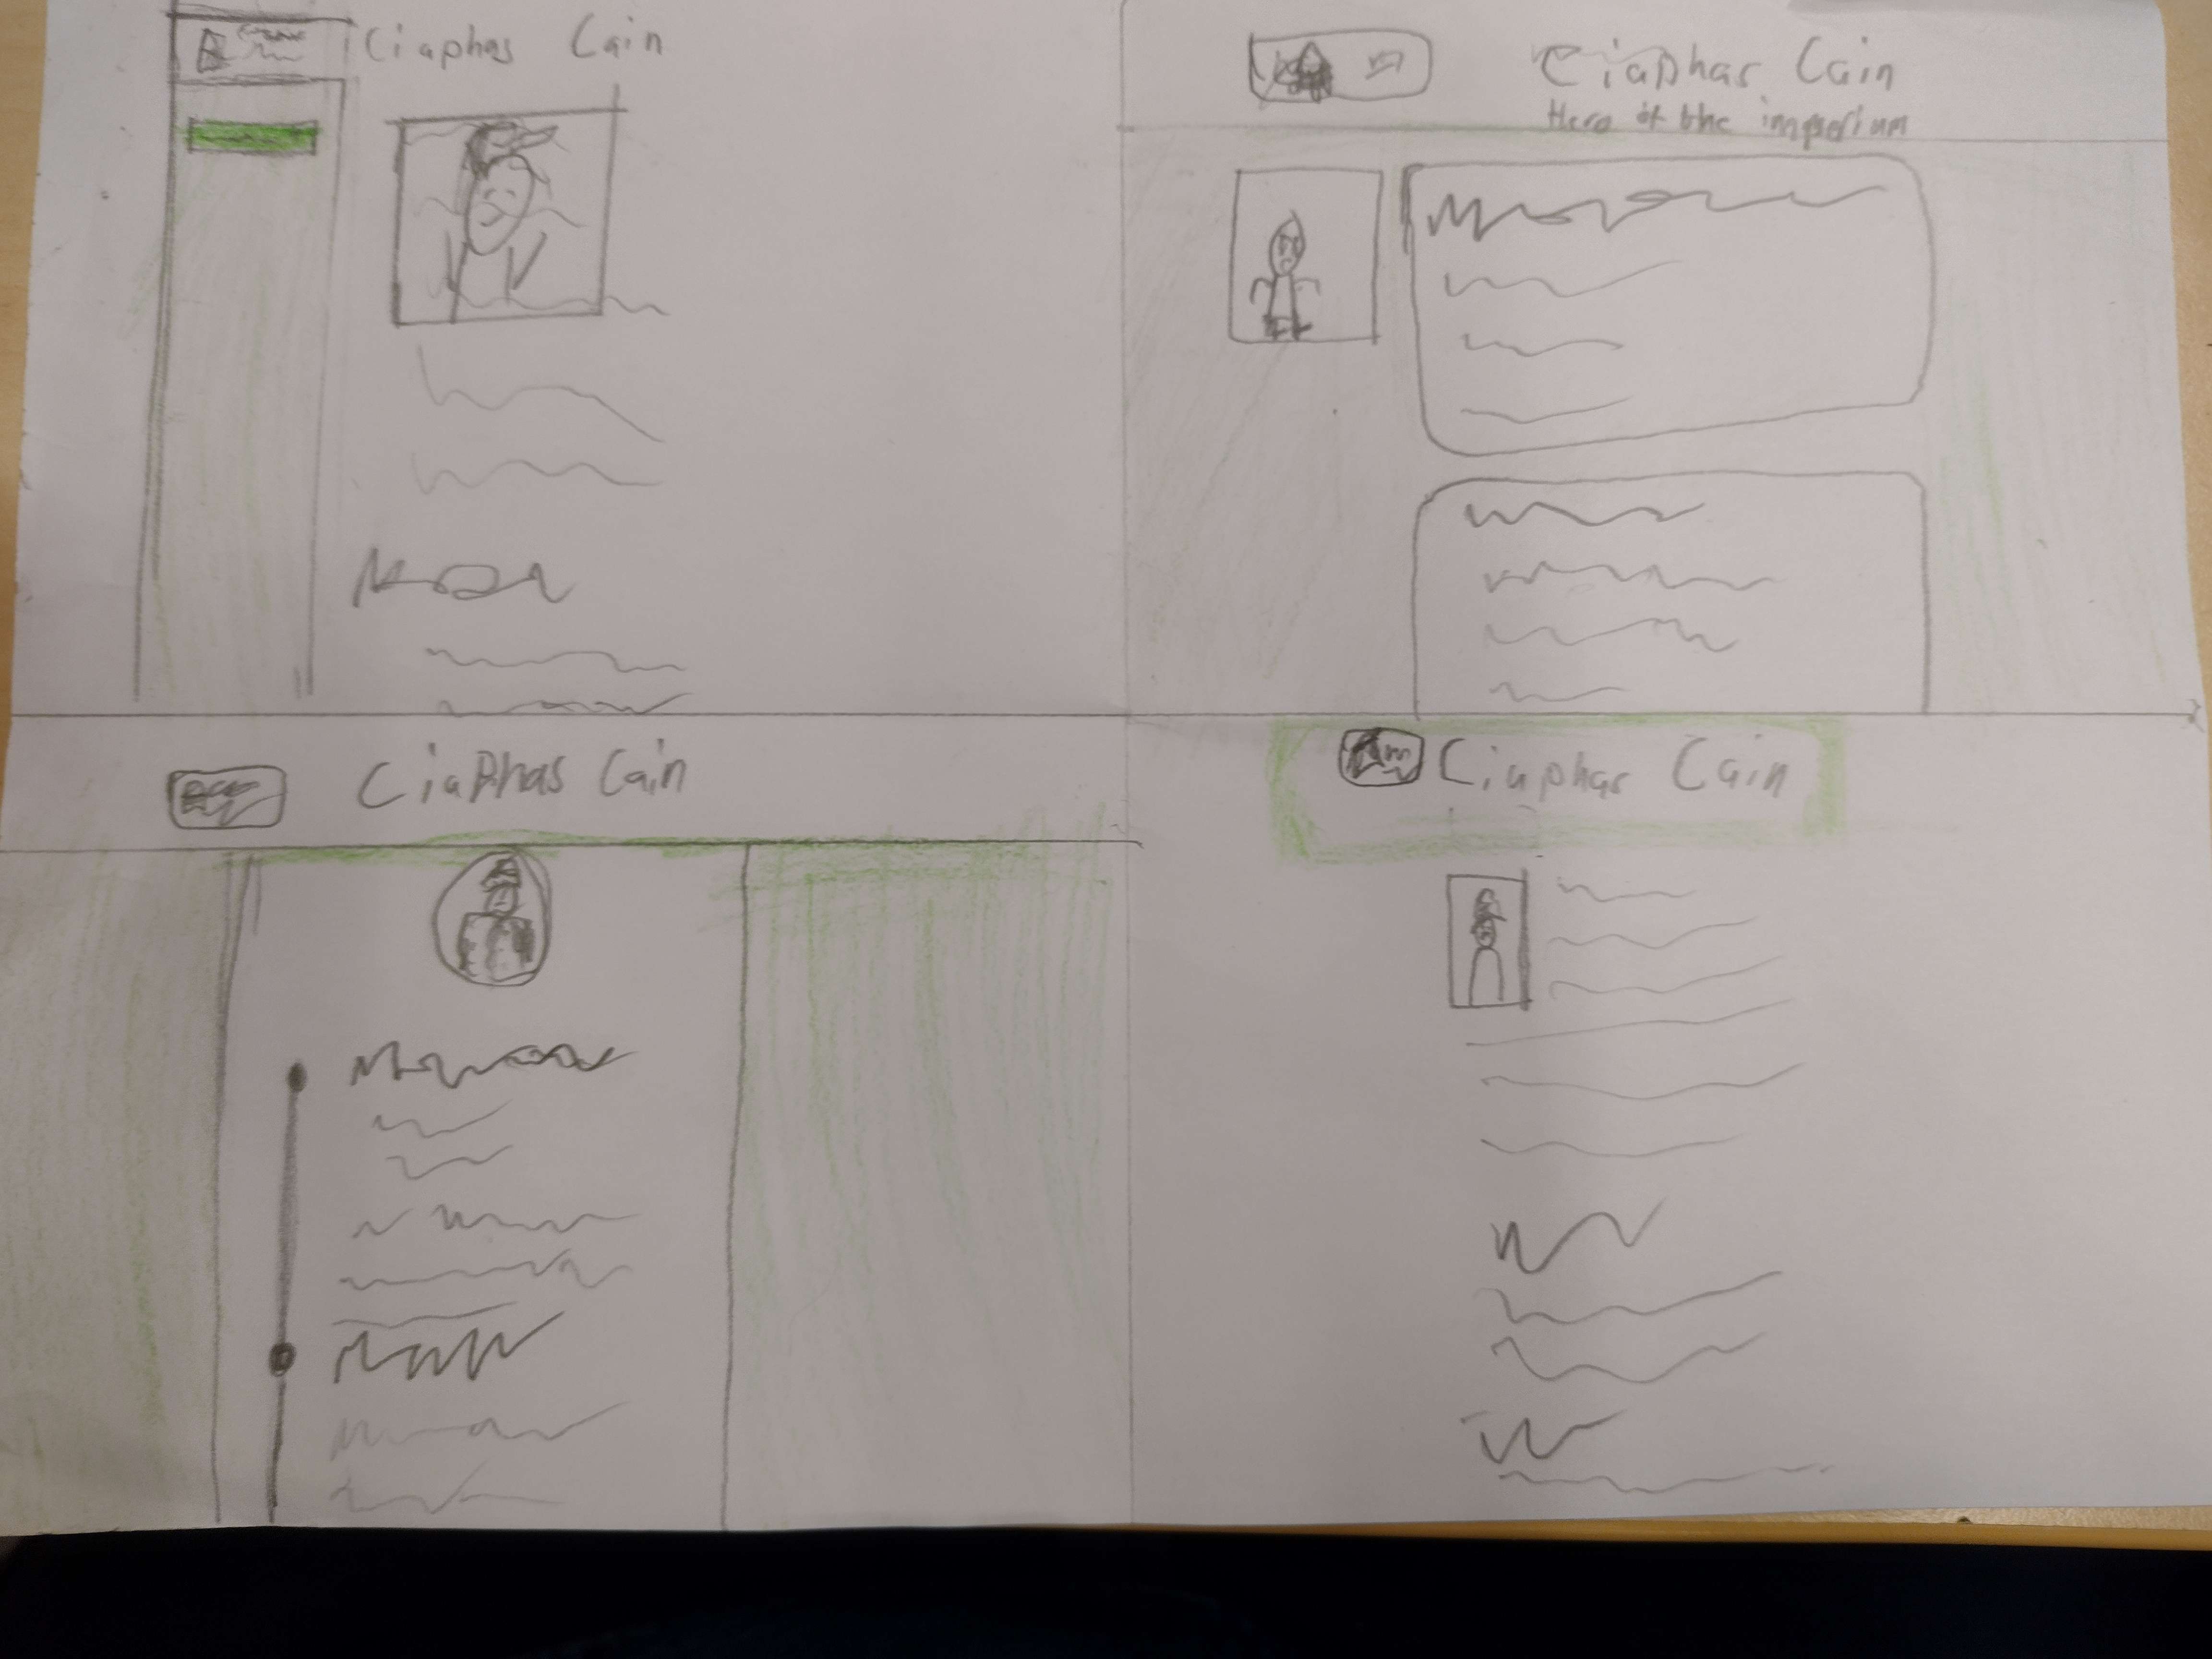 Ciaphas Cain
Ciaphas Cain
Hero of the imperium
Ciaphas Cain
Ciaphas Cain